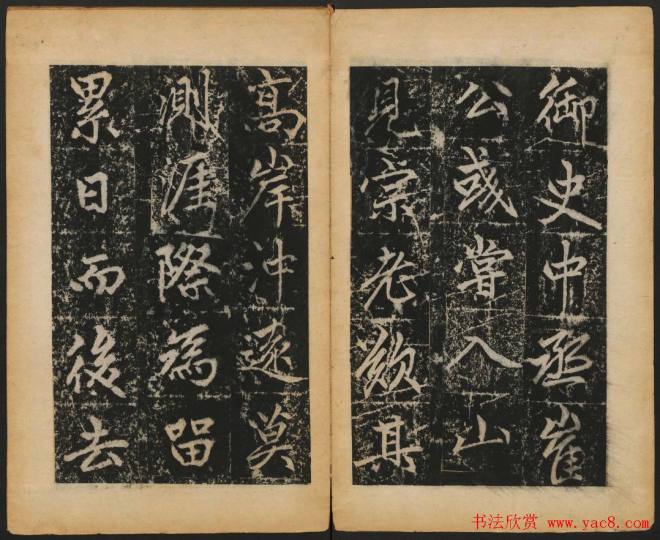 御史中丞崔
公彧嘗入山
見宗老歎其
高岸沖遠莫
測涯際為留
累日而後去
书法欣赏 www.yac8.com